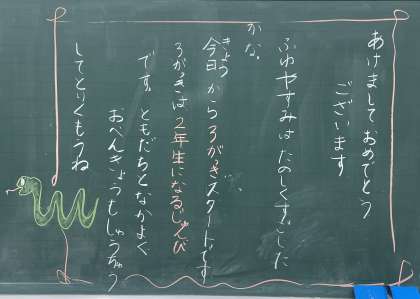 あけましておめでとう
ございます
ふゆやすみはたのしくすごした
かな。
今日から3がっきスタートです。
きょう
3がっきは2年生になるじゅんび
です。ともだちとなかよく
おべんきょうもしゅうちゅう
してとりくもうね